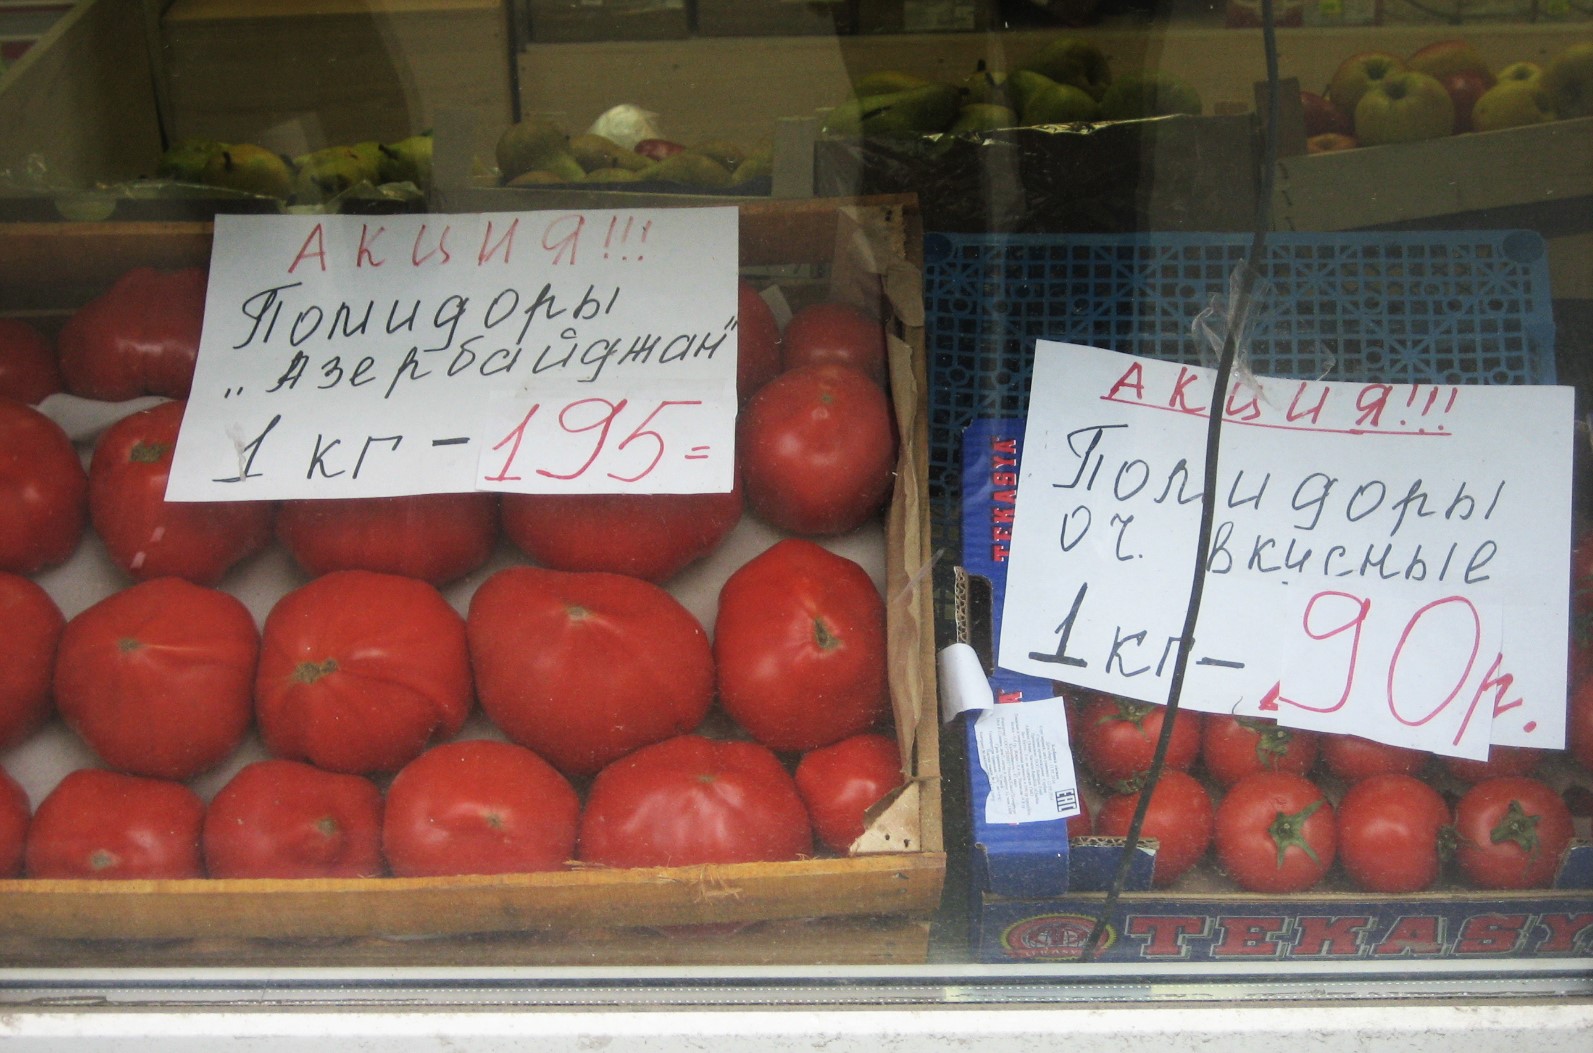 АКЦИЯ!!!
Помидоры
„Азербайджан"
1 кг - 195=
АКЦИЯ!!!
Помидоры
оч. вкусные
1 кг - 90р.
TEKASYA
EAC
TEKASY